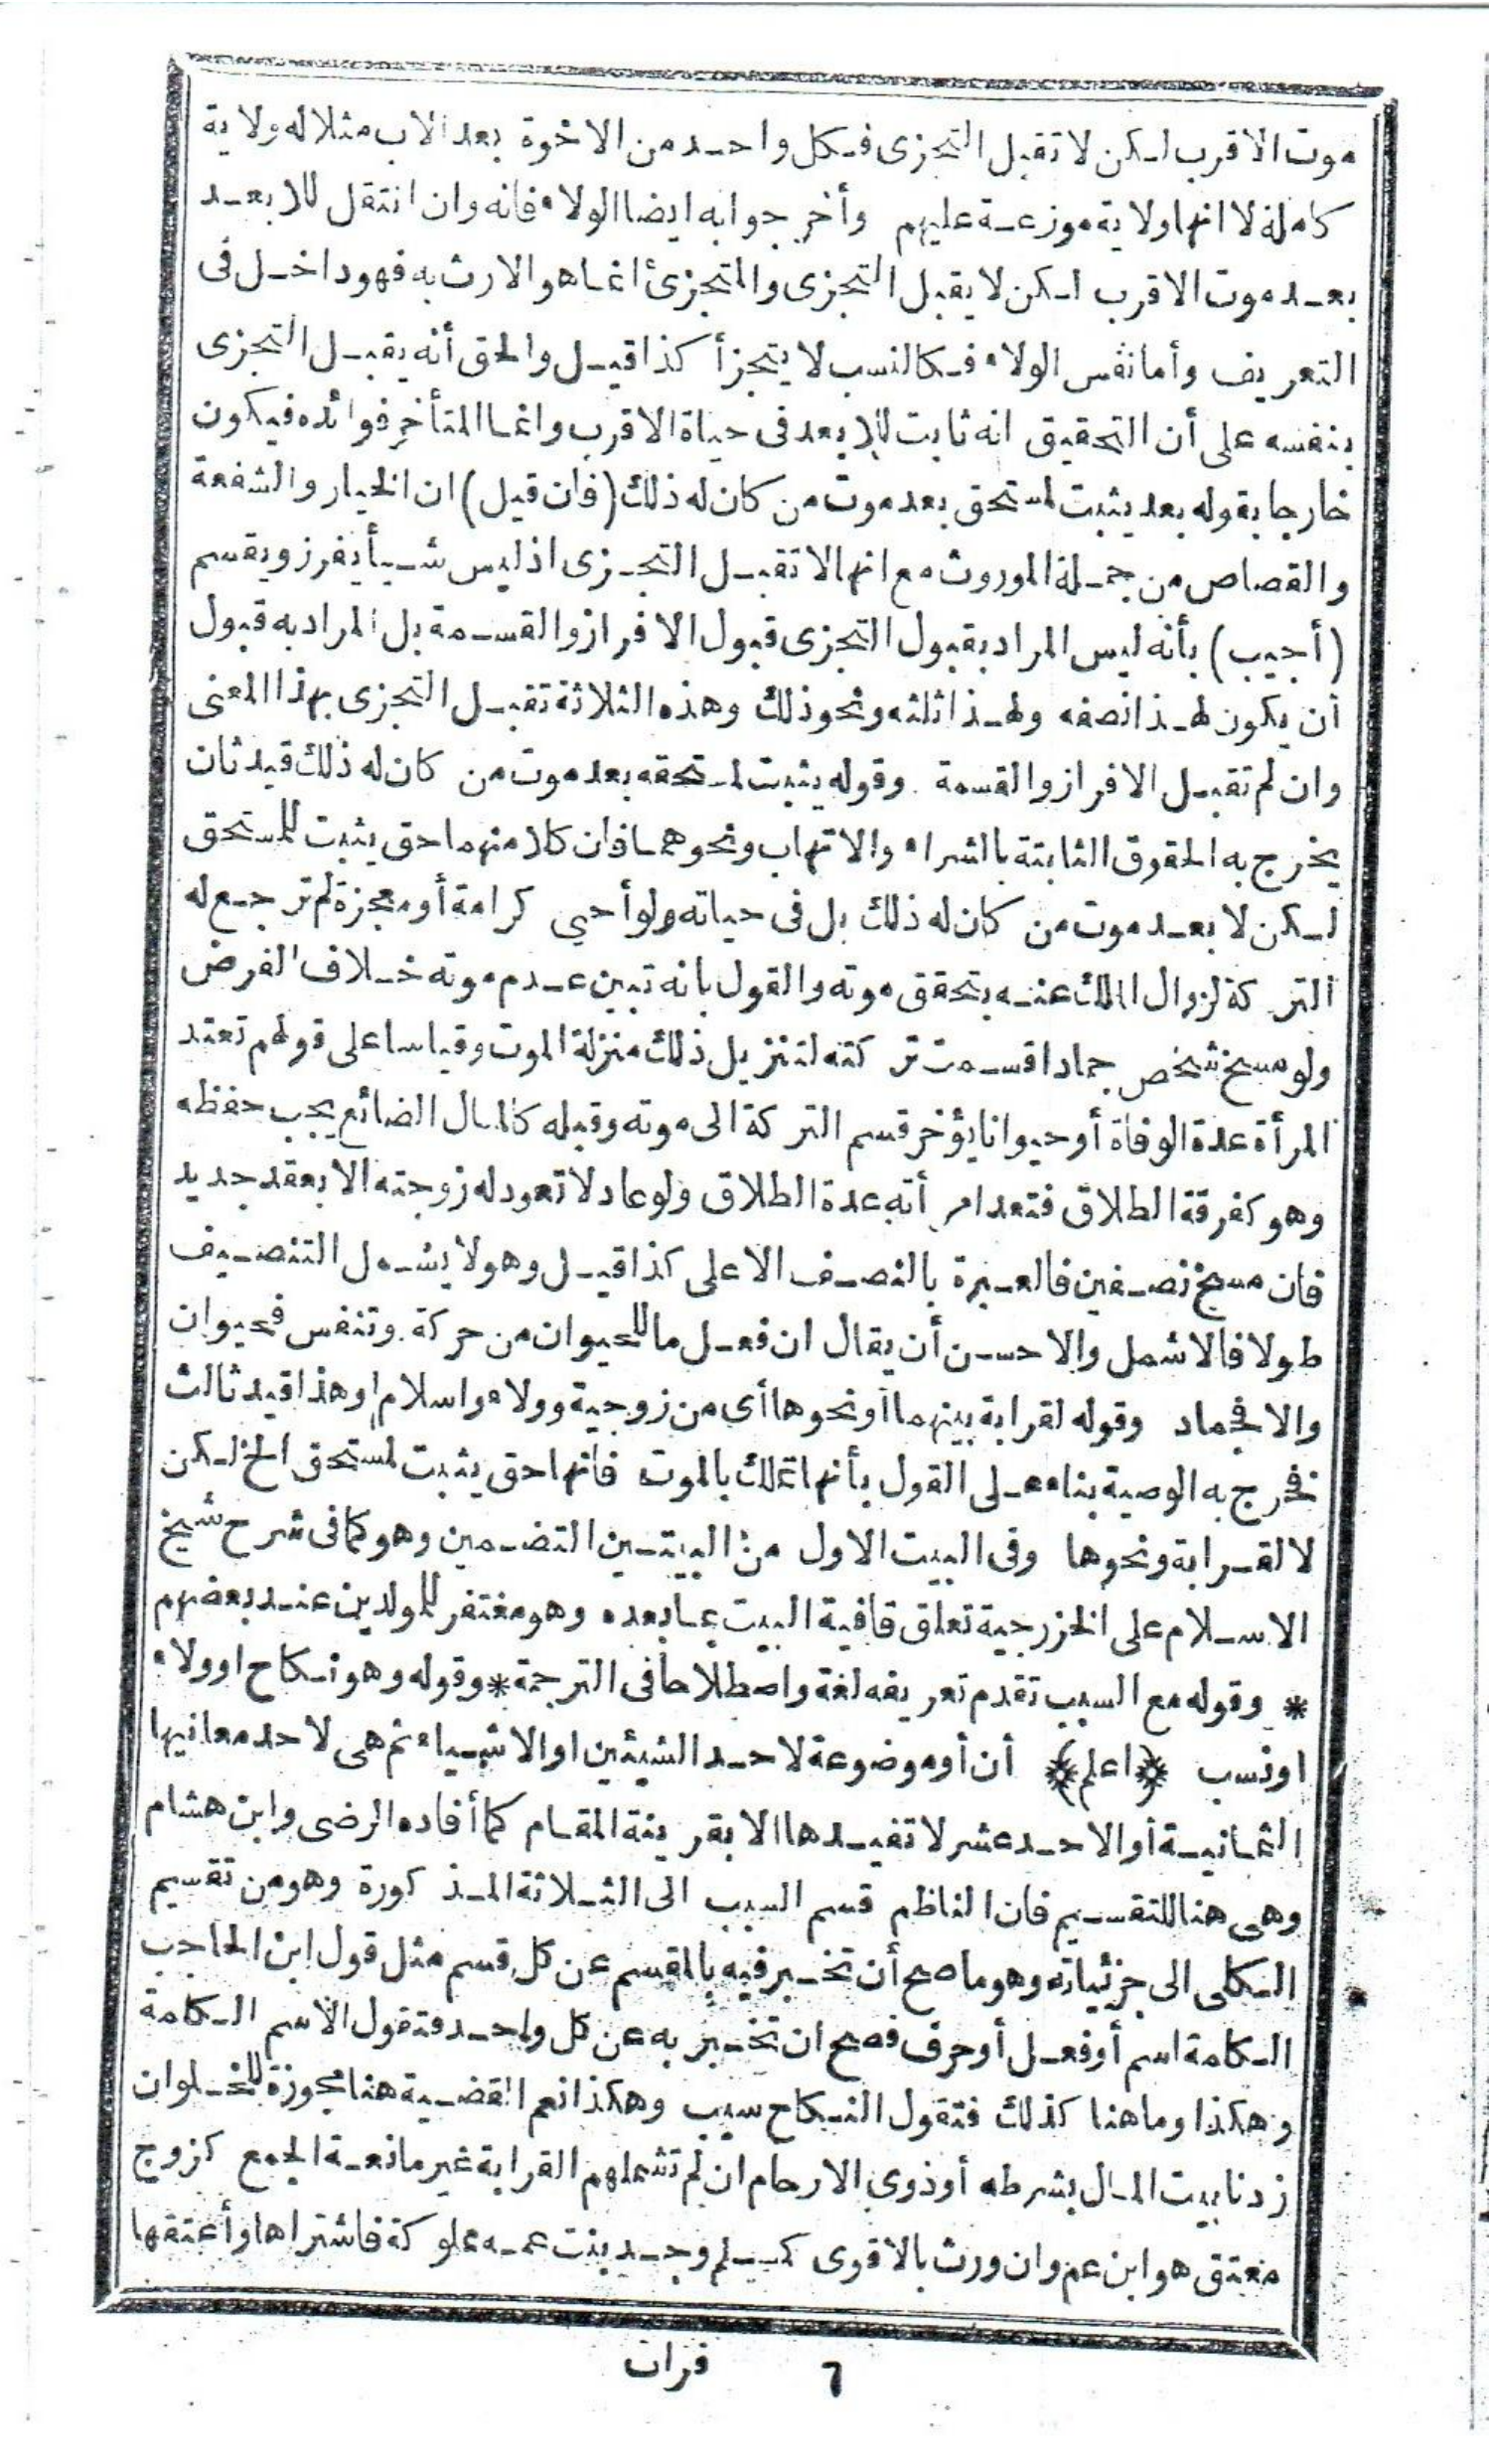 موت الاقرب لكن لا تقبل التجزى فكل واحد من الاخوة بعد الاب مثلا له ولاية
كاملة لا انها ولاية موزعة عليهم وأخرجوا به ايضا الولاء فانه وان انتقل للابعد
بعد موت الاقرب لكن لا يقبل التجزى والمتجزئ انما هو الارث به فهو داخل فى
التعريف وأما نفس الولاء فكالنسب لا يتجزأ كذا قيل والحق أنه يقبل التجزى
بنفسه على أن التحقيق انه ثابت للابعد فى حياة الاقرب وانما المتأخر فوائده فيكون
خارجا بقوله بعد يثبت لمستحق بعد موت من كان له ذلك (فان قيل) ان الخيار والشفعة
والقصاص من جملة الموروث مع انها لا تقبل التجزى اذ ليس شيأ يفرز ويقسم
(أجيب) بأنه ليس المراد بقبول التجزى قبول الافراز والقسمة بل المراد به قبول
أن يكون لهذا نصفه ولهذا ثلثه ونحو ذلك وهذه الثلاثة تقبل التجزى بهذا المعنى
وان لم تقبل الافراز والقسمة وقوله يثبت لمستحقه بعد موت من كان له ذلك قيد ثان
يخرج به الحقوق الثابتة بالشراء والاتهاب ونحوهما فان كلا منهما حق يثبت للمستحق
لكن لا بعد موت من كان له ذلك بل فى حياته ولو أحيي كرامة أو معجزة لم ترجع له
التركة لزوال الملك عنه بتحقق موته والقول بانه تبين عدم موته خلاف الفرض
ولو مسخ شخص جمادا قسمت تركته لتنزيل ذلك منزلة الموت وقياسا على قولهم تعتد
المرأة عدة الوفاة أو حيوانا يؤخر قسم التركة الى موته وقبله كالمال الضائع يجب حفظه
وهو كفرقة الطلاق فتعد امرأته عدة الطلاق ولو عاد لا تعود له زوجته الا بعقد جديد
فان مسخ نصفين فالعبرة بالنصف الاعلى كذا قيل وهو لا يشمل التنصيف
طولا فالاشمل والاحسن أن يقال ان فعل ما للحيوان من حركة وتنفس فحيوان
والا فجماد وقوله لقرابة بينهما أو نحوها أى من زوجية وولاء واسلام وهذا قيد ثالث
تخرج به الوصية بناء على القول بأنها تملك بالموت فانها حق يثبت لمستحق الخ لكن
لا لقرابة ونحوها وفى البيت الاول من البيتين التضمين وهو كما فى شرح شيخ
الاسلام على الخزرجية تعلق قافية البيت بما بعده وهو مغتفر للمولدين عند بعضهم
* وقوله مع السبب تقدم تعريفه لغة واصطلاحا فى الترجمة * وقوله وهو نكاح او ولاء
او نسب ﴿اعلم﴾ أن أو موضوعة لاحد الشيئين او الاشياء ثم هى لاحد معانيها
الثمانية أو الاحد عشر لا تفيدها الا بقرينة المقام كما أفاده الرضى وابن هشام
وهى هنا للتقسيم فان الناظم قسم السبب الى الثلاثة المذكورة وهو من تقسيم
الكلى الى جزئياته وهو ما صح أن تخبر فيه بالمقسم عن كل قسم مثل قول ابن الحاجب
الكلمة اسم أو فعل أو حرف فصح ان تخبر به عن كل واحد فتقول الاسم الكلمة
وهكذا وما هنا كذلك فتقول النكاح سبب وهكذا نعم القضية هنا مجوزة للخلو ان
زدنا بيت المال بشرطه أو ذوى الارحام ان لم تشملهم القرابة غير مانعة الجمع كزوج
معتق هو ابن عم وان ورث بالاقوى كمسلم وجد بنت عمه مملوكة فاشتراها وأعتقها
٦ فرات